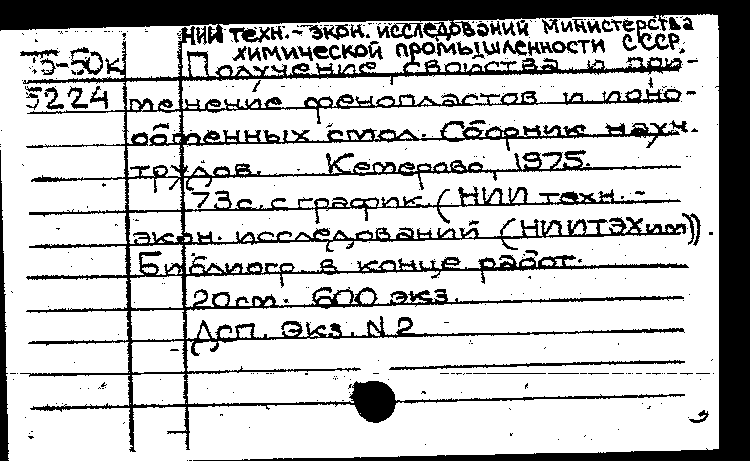 НИИ техн.- экон. исследований Министерства
химической промышленности СССР.
75-50к Получение, свойства и при-
5224 менение фенопластов и ионо-
обменных смол. Сборник научн.
трудов. Кемерово, 1975.
73с. с график. (НИИ техн.-
экон. исследований (НИИТЭХим)).
Библиогр. в конце работ.
20см. 600 экз.
Дсп. Экз. N2